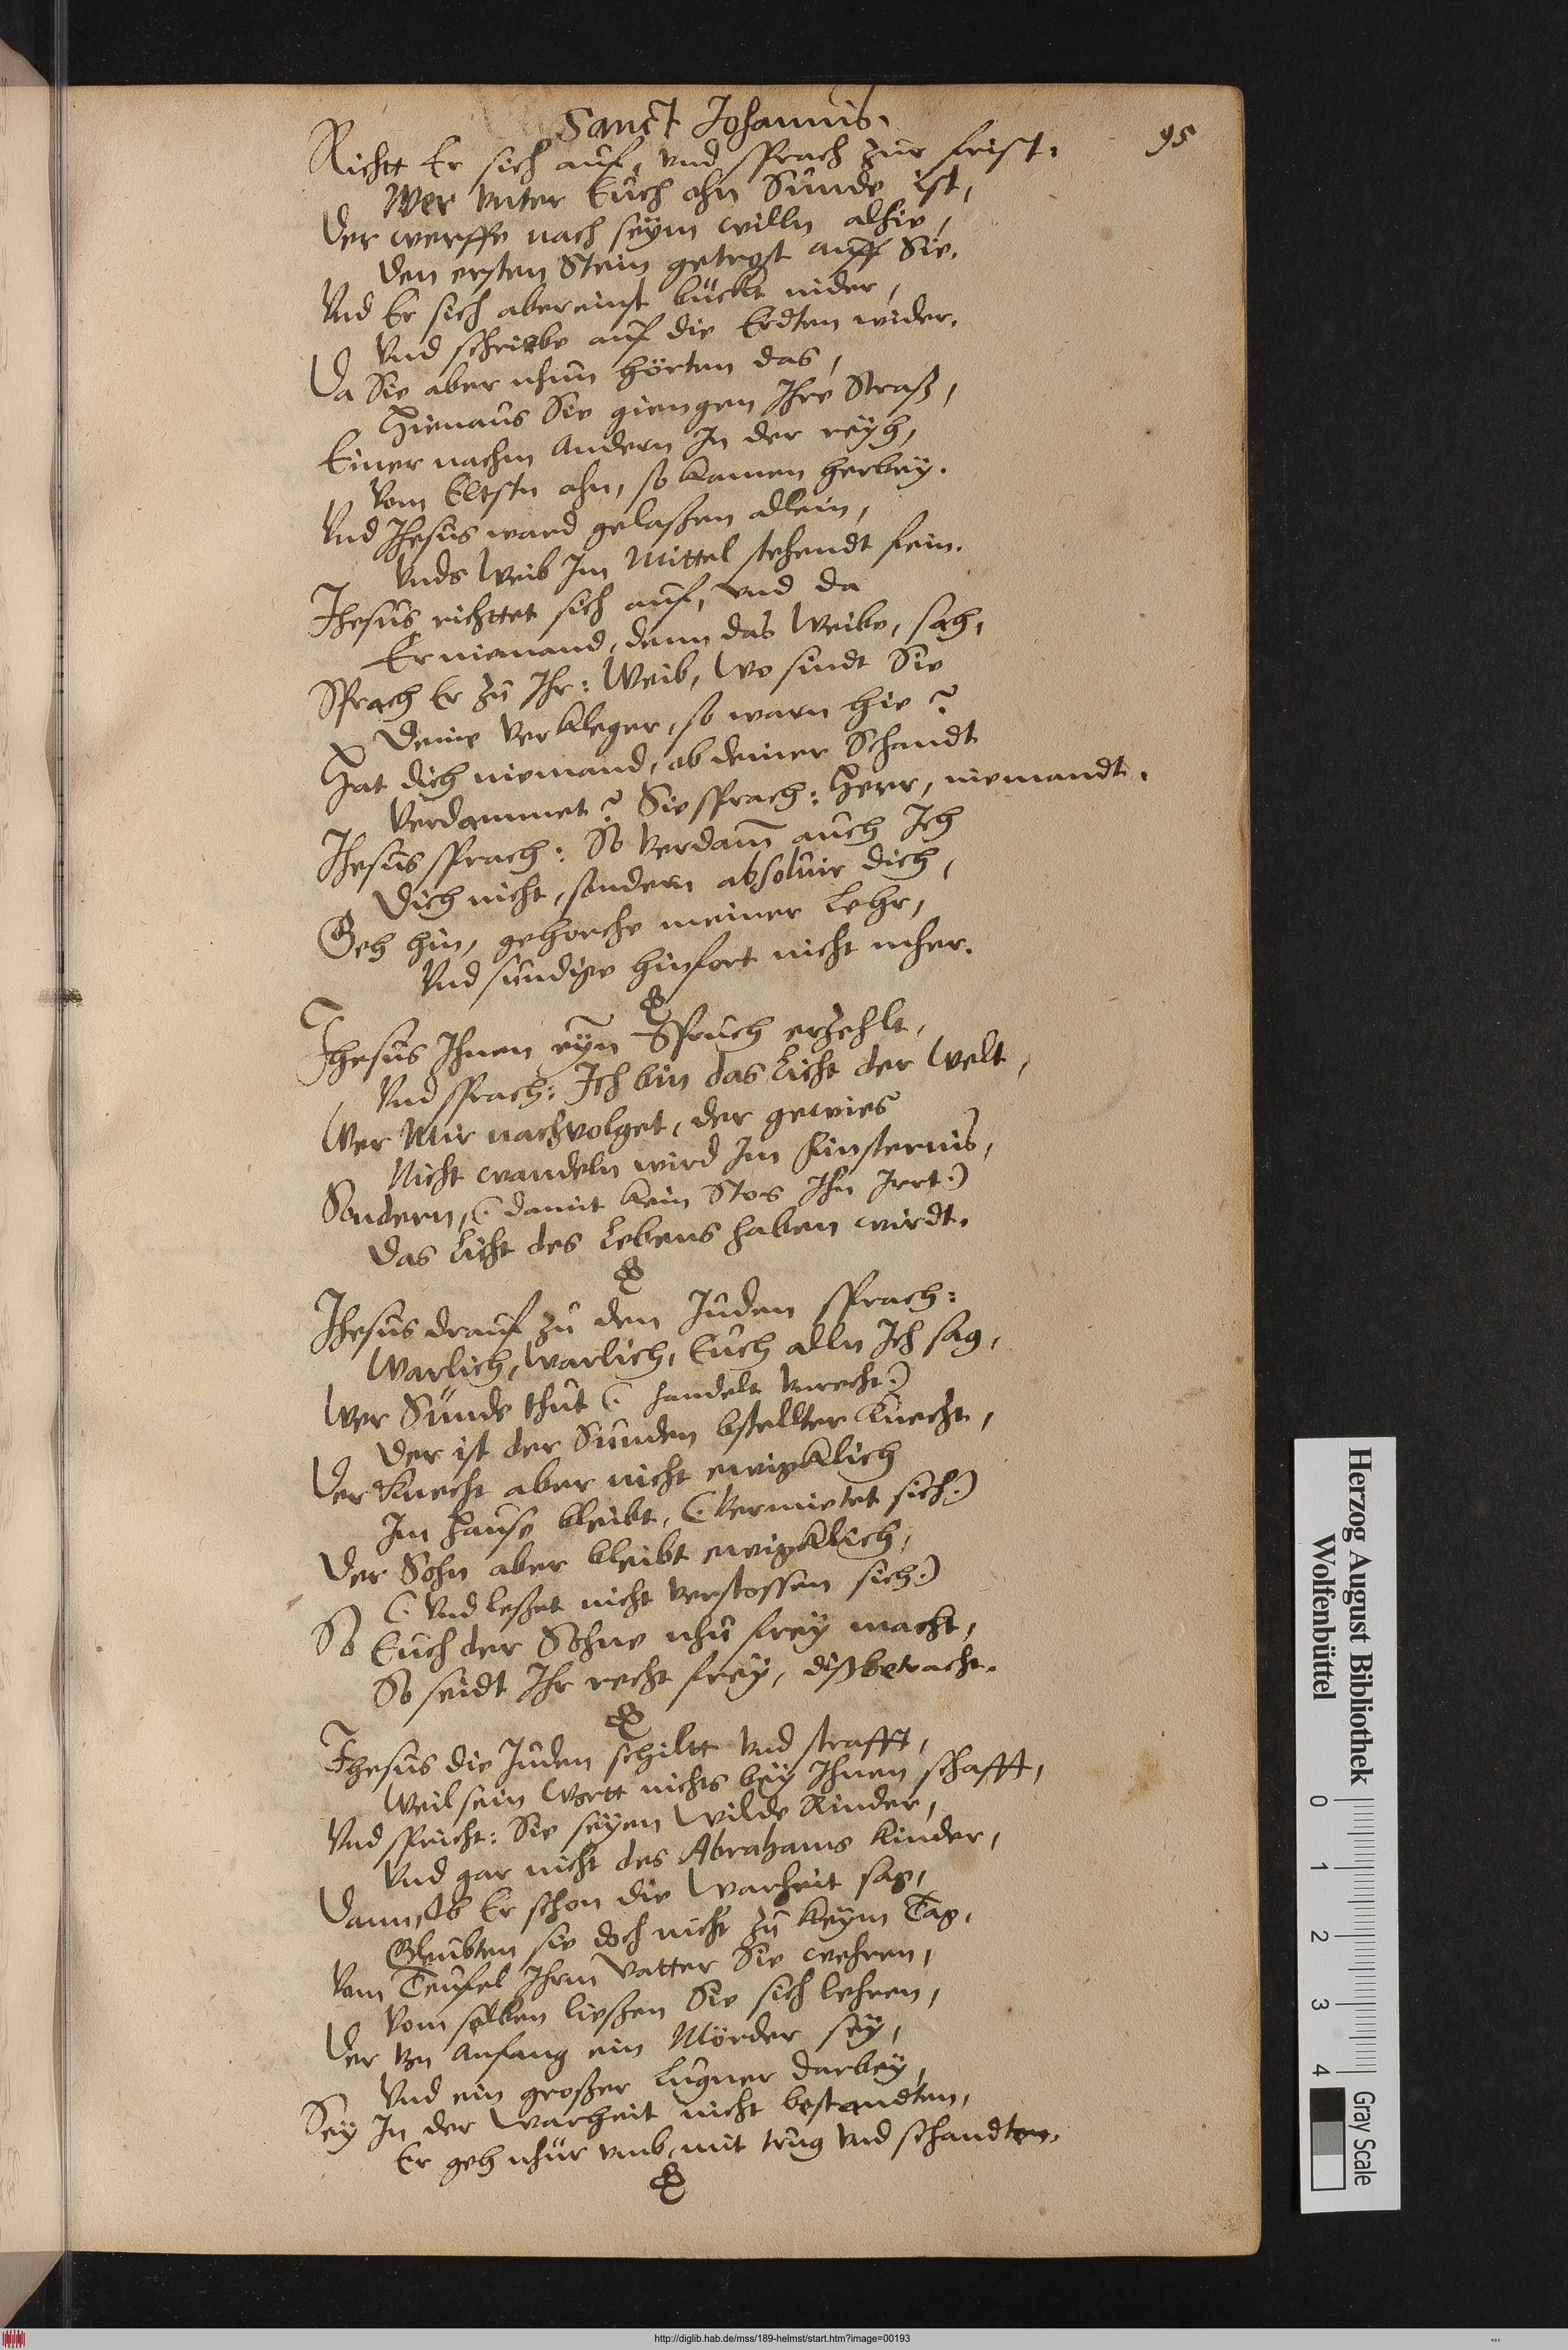 Sanct Johannis.
95
Richtt Er sich auf, und sprach zur frist:
Wer unter Euch ohn Sunde ist,
Der werffe nach seÿm willn alhie,
Den ersten Stein getrost auff Sie.
Vnd Er sich abereinst bückt nider,
Vnd schriebe auf die Erdten wider.
Da Sie aber nhun hörten das,
Hienaus Sie giengen Ihre Straß,
Einer nachm Andern In der reÿh,
Vom Eltstn ahn, so kamen herbeÿ.
Vnd Jhesus ward gelaßen allein,
Vnds Weib Im Mittel stehendt fein.
Jhesus richttet sich auf, vnd da
Er niemand, dann das Weibe, sah,
Sprach Er zu Ihr: Weib, Wo sindt Sie
Deine Verkleger, so warn hie?
Hat dich niemand, ob deiner Schandt
Verdammet? Sie sprach: Herr, niemandt.
Jhesus sprach: So verdam̄ auch Ich
Dich nicht, sondern absoluir dich,
Geh hin, gehorche meiner Lehr,
Vnd sundige hinfort nicht mher.
Jhesus Ihnen eÿn Spruch erzehlt,
Vnd sprach: Ich bin das Licht der Welt,
Wer Mir nachvolget, der gewies
Nicht wandeln wird Im finsternis,
Sondern, (: damit kein Stos Ihn Irrt:)
Das Licht des Lebens haben wirdt.
Jhesus drauf zu den Juden sprach:
Warlich, Warlich, Euch alln Ich sag,
Wer Sünde thut (: handelt vnrecht:)
Der ist der Sunden bstellter Knecht,
Der Knecht aber nicht ewigklich
Im Hause bleibt, (: Vermietet sich:)
Der Sohn aber bleibt ewigklich,
(: Vnd leßet nicht verstossen sich:)
So Euch der Sohne nhu freÿ macht,
So seidt Ihr recht freÿ, diß betracht.
Jhesus die Juden schiltt vnd strafft,
Weil sein Wortt nichts beÿ Ihnen schafft,
Vnd spricht: Sie seÿen Wilde Rinder,
Vnd gar nicht des Abrahams Kinder,
Dann, Ob Er schon die Warheit sag,
Gleubten sie doch nicht zu keÿm Tag.
Vom Teufel Ihrm Vatter Sie wehren,
Vom selben ließen Sie sich lehren,
Der Von Anfang ein Mörder seÿ,
Vnd ein großer Lugner darbeÿ,
Seÿ In der Warheit nicht bestandten,
Er geh nhur vmb, mit trug vnd schandten.
Herzog August Bibliothek
Wolfenbüttel
0 1 2 3 4
Gray Scale
http://diglib.hab.de/mss/189-helmst/start.htm?image=00193